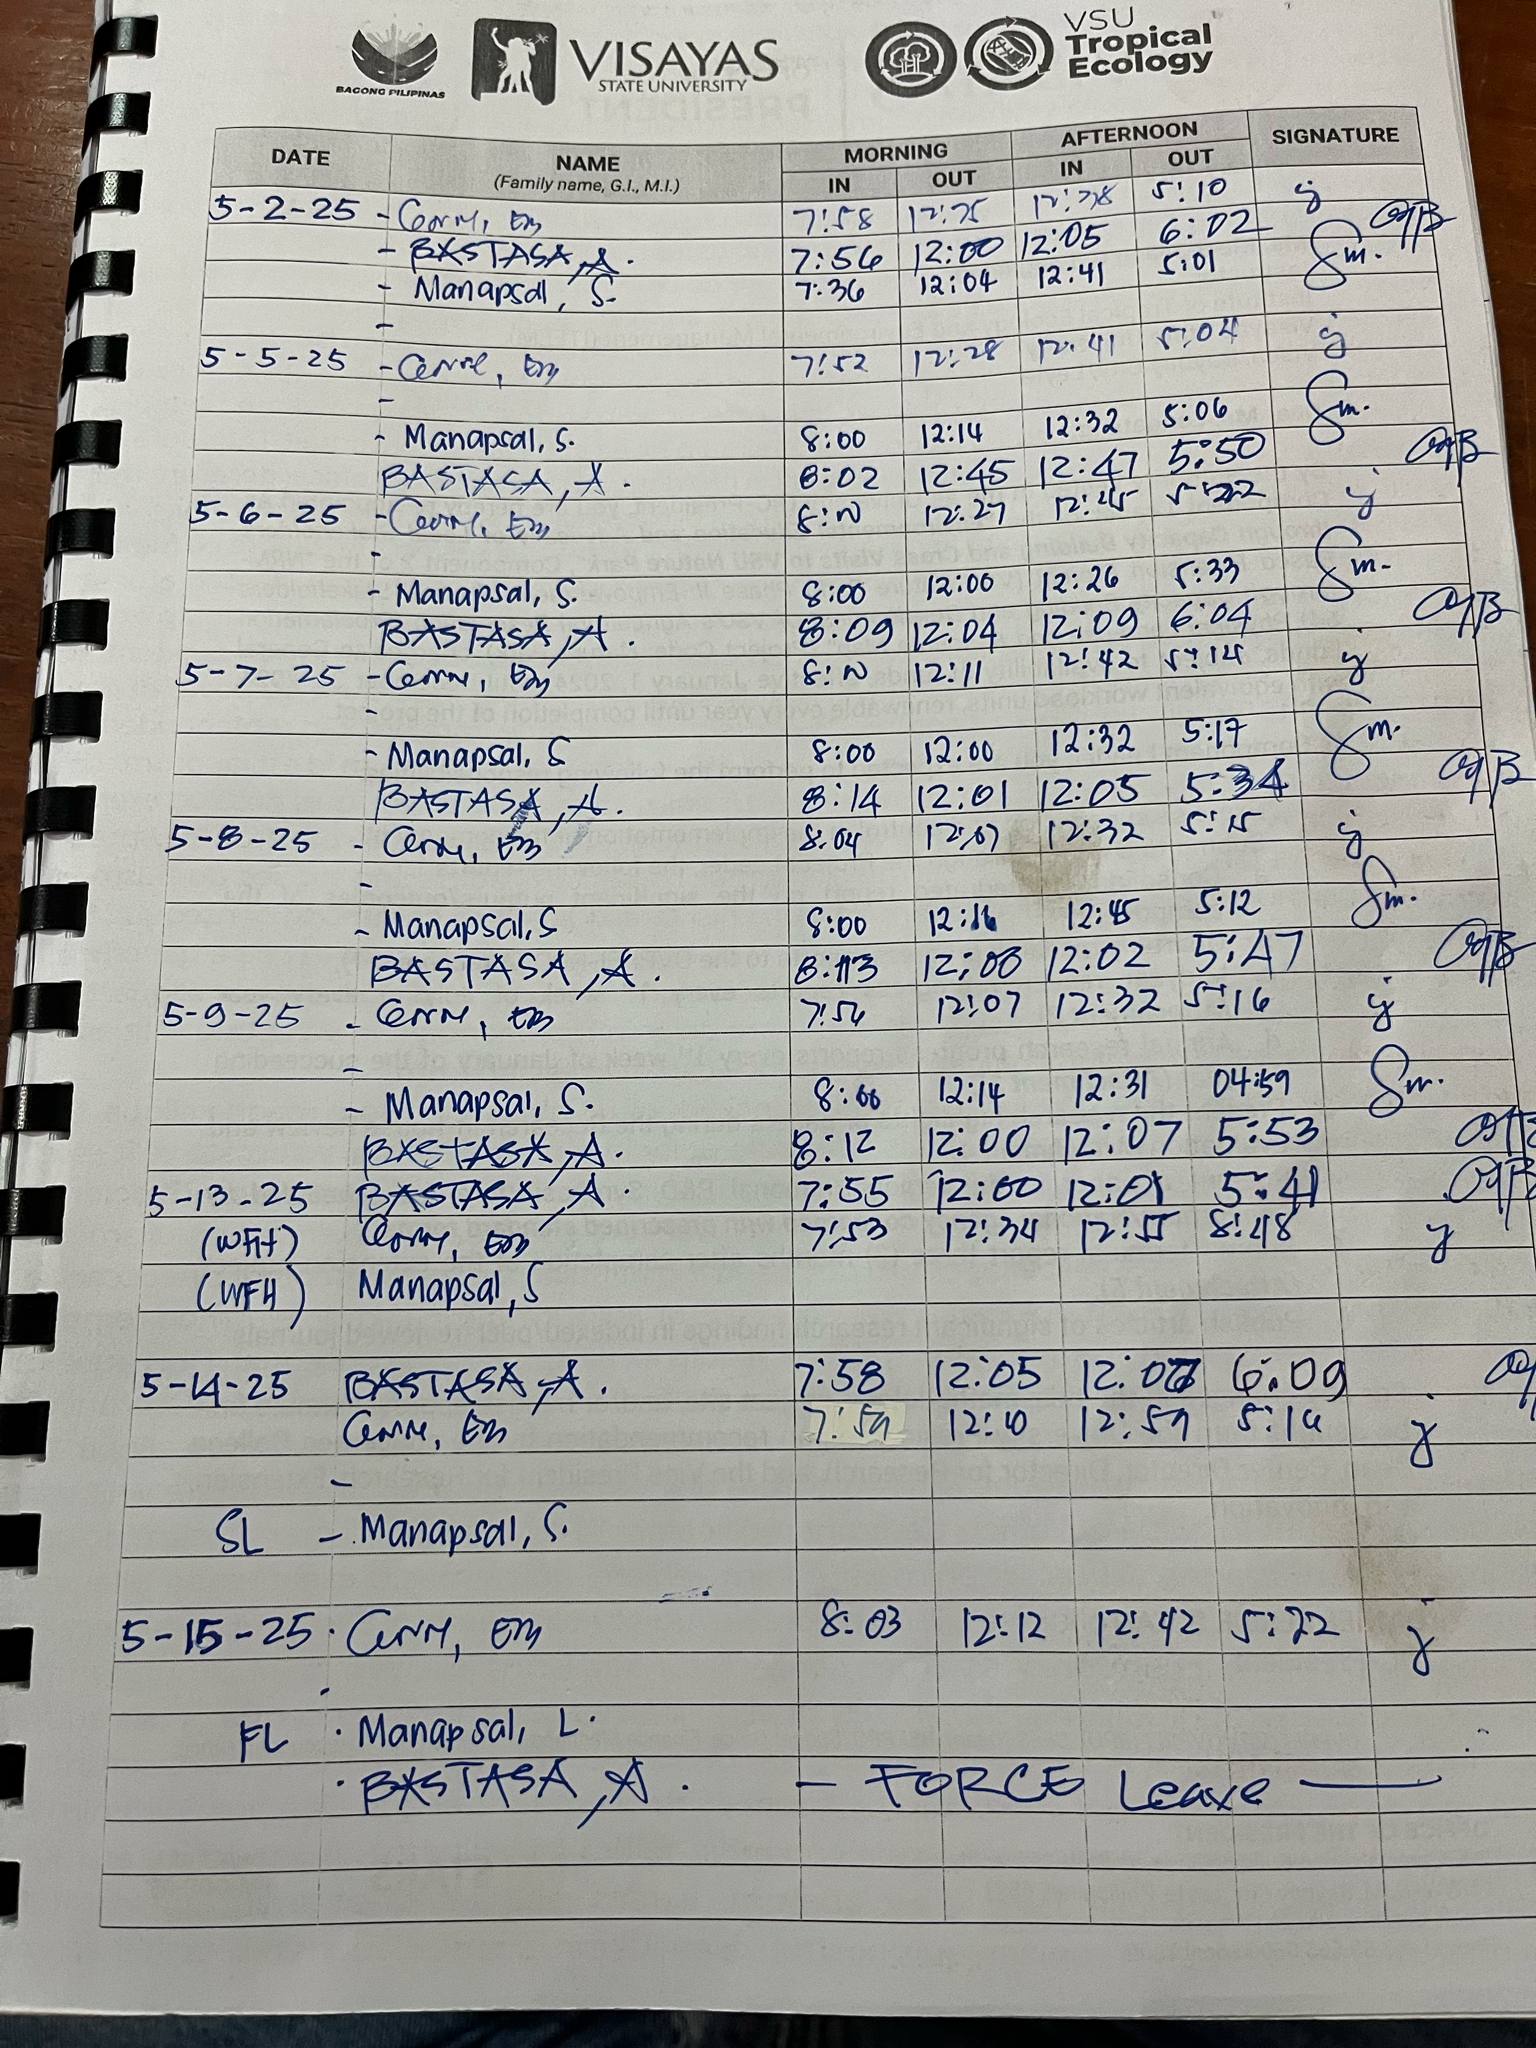 BAGONG PILIPINAS
VISAYAS
STATE UNIVERSITY
VSU
Tropical
Ecology
DATE NAME (Family name, G.I., M.I.) MORNING AFTERNOON SIGNATURE
IN OUT IN OUT
5-2-25 - 7:58 5:10
- BASTASA, A. 7:56 12:00 12:05 6:02
- Manapsal, S. 7:36 12:04 12:41 5:01 Sm.
-
5-5-25 - 7:52 12:28 12:41 5:04
-
- Manapsal, S. 8:00 12:14 12:32 5:06 Sm.
BASTASA, A. 8:02 12:45 12:47 5:50
5-6-25 - 12:27 12:45
-
- Manapsal, S. 8:00 12:00 12:26 5:33 Sm.
BASTASA, A. 8:09 12:04 12:09 6:04
5-7-25 - 12:11 12:42 5:14
-
- Manapsal, S 8:00 12:00 12:32 5:17 Sm.
BASTASA, A. 8:14 12:01 12:05 5:34
5-8-25 - 8:04 12:07 12:32 5:15
-
- Manapsal, S 8:00 12:45 5:12 Sm.
BASTASA, A. 12:00 12:02 5:47
5-9-25 - 7:56 12:07 12:32 5:16
-
- Manapsal, S. 8:00 12:14 12:31 04:59 Sm.
BASTASA, A. 8:12 12:00 12:07 5:53
5-13-25 BASTASA, A. 7:55 12:00 12:01 5:41
(WFH) 7:53 12:34 12:55 8:48
(WFH) Manapsal, S
5-14-25 BASTASA, A. 7:58 12:05 6:09
7:59 12:10 12:59 5:16
-
SL - Manapsal, S.
5-15-25 8:03 12:12 12:42 5:22
FL · Manapsal, L.
· BASTASA, A. - FORCE Leave -